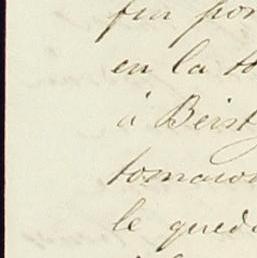 fin por
en la to
á Beist
tomaron
le qued